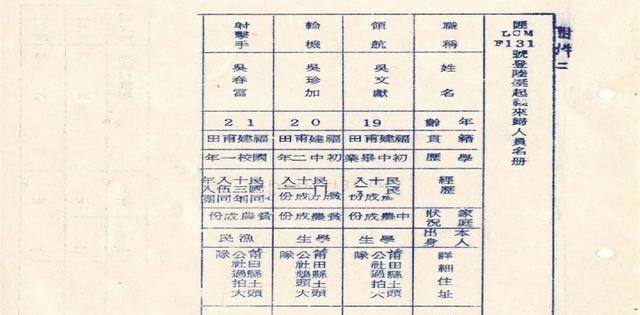 附件二
匪LCM F131號登陸艇起義來歸人員名册
職稱
姓名
年齡
籍貫
學歷
經歷
家庭狀況
本人出身
詳細住址
領航
吳文獻
19
福建甫田
初中畢業
中農成份
學生
莆田縣土頭
公社過拍
隊
輪機
吳珍加
20
福建甫田
初中二年
貧農成份
學生
莆田縣土頭
公社鵝頭大
隊
射擊手
吳春富
21
福建甫田
國校一年
貧農成份
漁民
莆田縣土頭
公社過拍大
隊